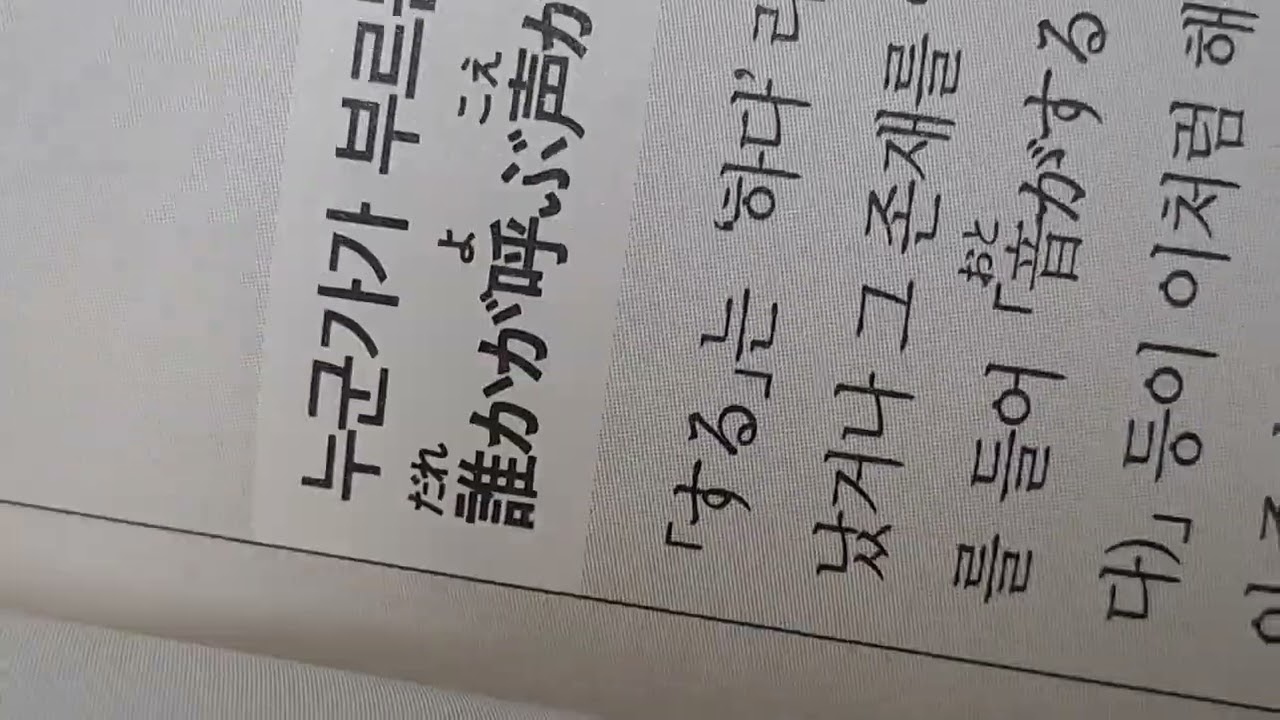 누군가가 부르
だれ よ こえ
誰かが呼ぶ声が
「する」는 '하다' 라
났거나 그 존재를
おと
를 들어 「音がする
다)」 등이 이처럼 해